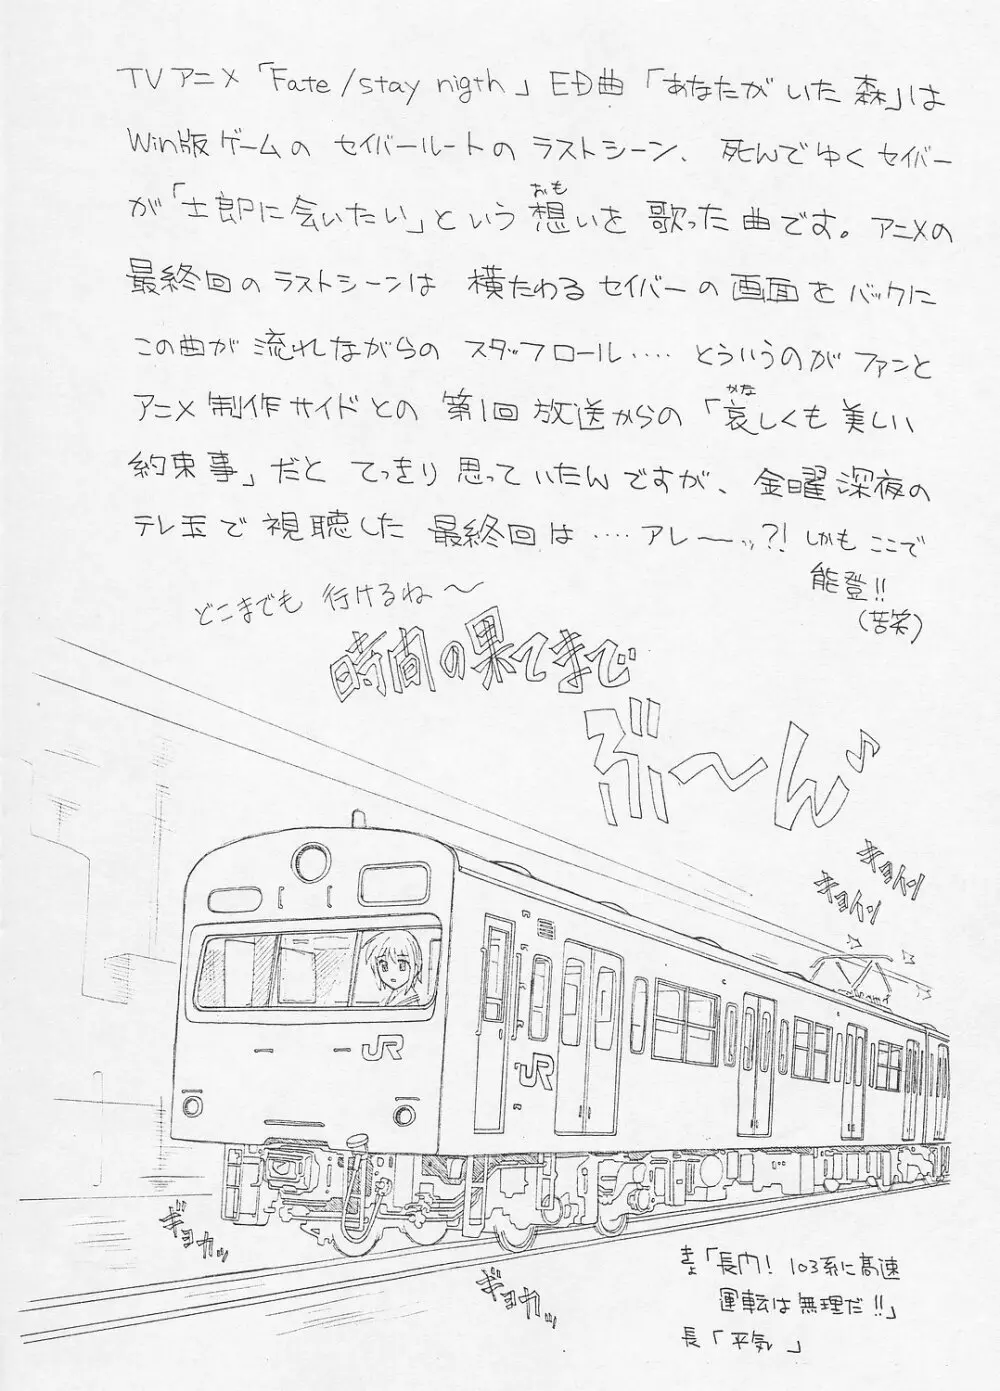 TVアニメ「Fate/stay nigth」ED曲「あなたがいた森」は
Win版ゲームの セイバールートの ラストシーン、死んでゆくセイバー
が「士郎に会いたい」という想いを 歌った曲です。アニメの
おも
最終回のラストシーンは 横たわるセイバーの画面をバックに
この曲が 流れながらの スタッフロール‥‥ とういうのが ファンと
アニメ制作サイドとの 第1回放送からの「哀しくも美しい
かな
約束事」だと てっきり思っていたんですが、金曜深夜の
テレ玉で視聴した 最終回は ‥‥ アレーッ?! しかもここで
能登!!
(苦笑)
どこまでも 行けるね〜
時間の果てまで
ぶ〜ん♪
キョイン
キョイン
JR
JR
ギョカッ
ギョカッ
キョ「長門! 103系に高速
運転は無理だ!!」
長「平気」